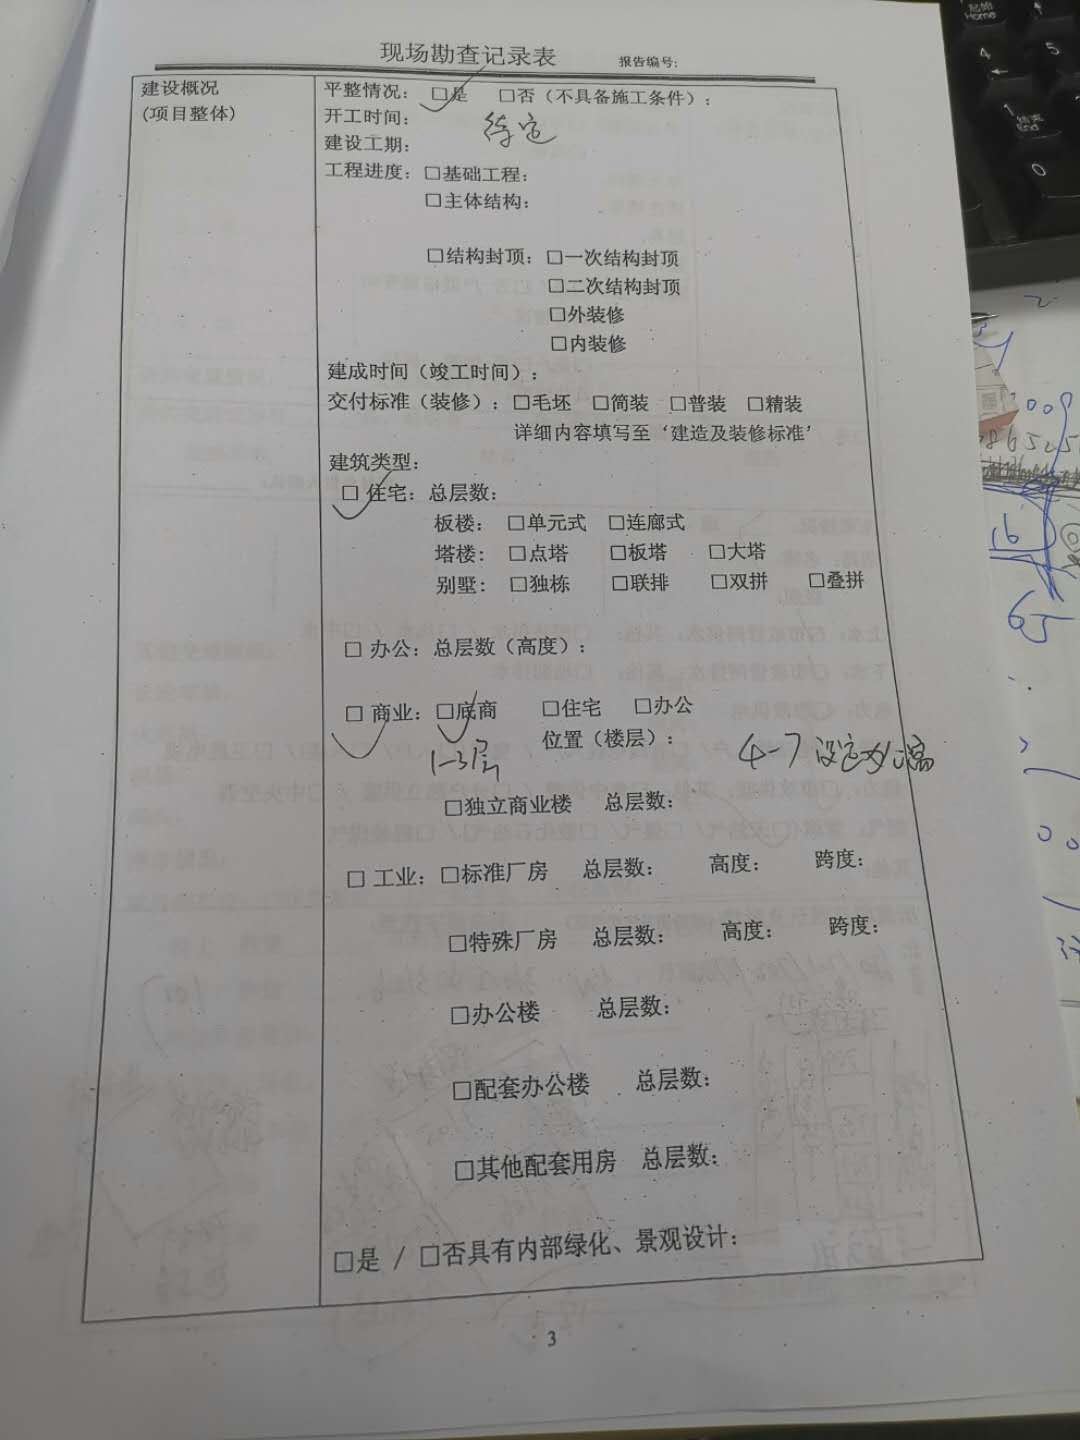 现场勘查记录表 报告编号:
建设概况
(项目整体)
平整情况: □是 □否(不具备施工条件):
开工时间: 待定
建设工期:
工程进度: □基础工程:
□主体结构:
□结构封顶: □一次结构封顶
□二次结构封顶
□外装修
□内装修
建成时间(竣工时间):
交付标准(装修): □毛坯 □简装 □普装 □精装
详细内容填写至‘建造及装修标准’
建筑类型:
□ 住宅: 总层数:
板楼: □单元式 □连廊式
塔楼: □点塔 □板塔 □大塔
别墅: □独栋 □联排 □双拼 □叠拼
□ 办公: 总层数(高度):
□ 商业: □底商 □住宅 □办公
位置(楼层):
1-3层 4-7设定为
□独立商业楼 总层数:
□ 工业: □标准厂房 总层数: 高度: 跨度:
□特殊厂房 总层数: 高度: 跨度:
□办公楼 总层数:
□配套办公楼 总层数:
□其他配套用房 总层数:
□是 / □否具有内部绿化、景观设计:
3
Home
4
5
1
End
0
16
65